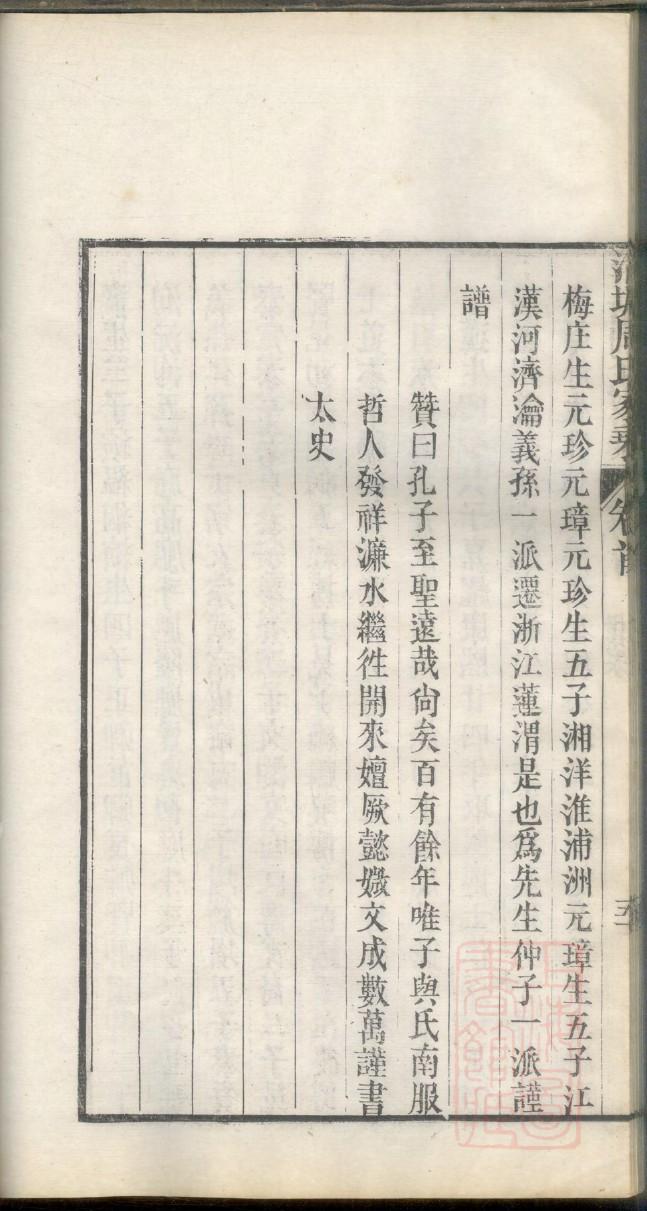 周氏家乘 卷首
五
梅庄生元珍元璋元珍生五子湘洋淮浦洲元璋生五子江
漢河濟瀹義孫一派遷浙江蓮渭是也爲先生仲子一派謹
譜
贊曰孔子至聖遠哉尙矣百有餘年唯子與氏南服
哲人發祥濂水繼徃開來嬗厥懿媺文成數萬謹書
太史